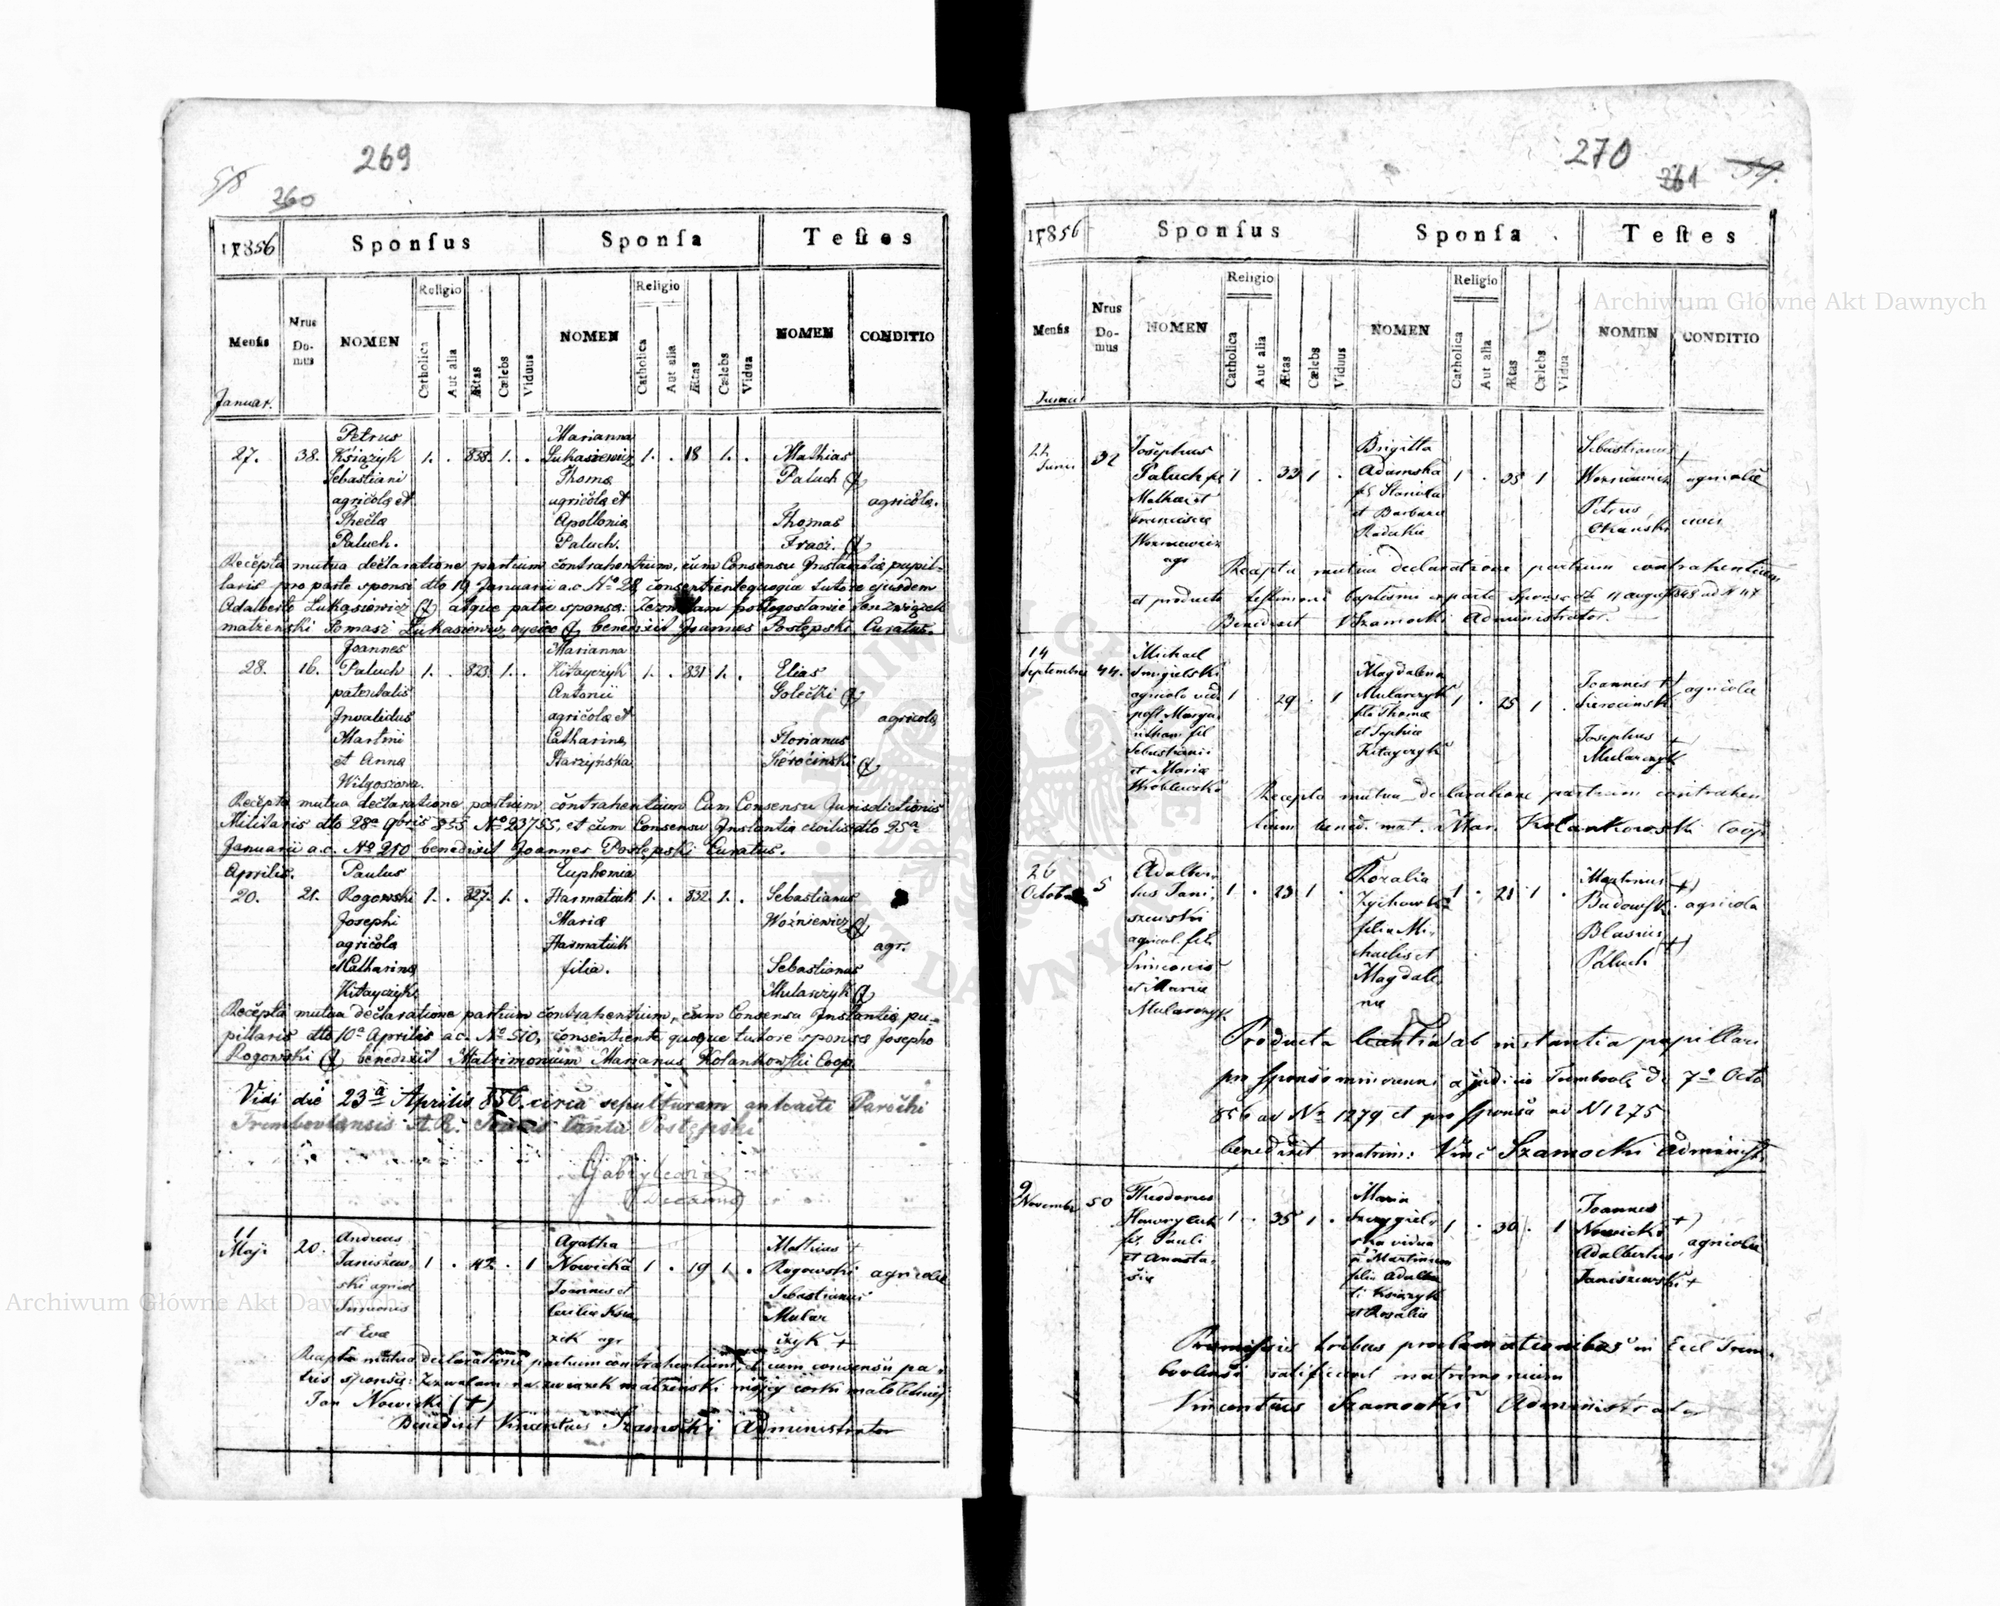 269
58
260
1856
Sponsus
Sponsa
Testes
Mensis
Nrus Domus
NOMEN
Religio
Catholica
Aut alia
Ætas
Cælebs
Viduus
NOMEN
Religio
Catholica
Aut alia
Ætas
Cælebs
Vidua
NOMEN
CONDITIO
Januar.
27. 38. Petrus Książyk Sebastiani agricolæ et Theclæ Paluch. 1. . 838. 1. .
Marianna Lukasiewicz Thomæ agricolæ et Apolloniæ Paluch. 1. . 18 1. .
Mathias Paluch
Thomas Fracz.
agricolæ.
Recepta mutua declaratione partium contrahentium, cum Consensu Instantiæ pupil-
laris pro parte sponsi dto 19 Januarii a.c. No 28, consentiente quoque tutore ejusdem
Adalberto Lukasiewicz atque patre sponsæ:
matżenski Tomasz Lukasiewicz oyciec benedixit Joannes Postępski Curatus.
28. 16. Joannes Paluch patentalis Invalidus Martini et Anna 1. . 823. 1. .
Marianna Kitayczyk Antonii agricolæ et Catharinæ 1. . 831 1. .
Elias Golecki
Florianus Sierocinski
agricolæ
Recepta mutua declaratione partium contrahentium Cum Consensu Jurisdictionis
Militaris dto 28a 9bris 855 No 23755, et cum Consensu Instantiæ civilis dto 25a
Januarii a.c. No 210 benedixit Joannes Postępski Curatus.
Aprilis.
20. 21. Paulus Rogowski Josephi agricolæ Catharinæ Kitayczyk 1. . 827. 1. .
Euphemia Harmatiuk Mariæ Harmatiuk filia. 1. . 832. 1. .
Sebastianus Woźniewicz
Sebastianus Mularczyk
agr.
Recepta mutua declaratione partium contrahentium, cum Consensu Instantiæ pu-
pillaris dto 10a Aprilis a.c. No 510, consentiente quoque tutore sponsæ Josepho
Rogowski benedixit Matrimonium Marianus Kolankowski Coop.
Vidi die 23a Aprilis 856. circa sepulturam Parochi
Trembovlensis Postępski
Decanus
11 Maji 20. Andreas Janiszewski agricol Simonis et Evæ 1 . 42 . 1
Agatha Nowicka Joannes et Cecilia agr 1 . 19 1 .
Mathias Rogowski
Sebastianus Mularczyk +
agricolæ
Recepta mutua declaratione partium contrahentium, et cum consensu pa-
tris sponsæ: Zezwalam na związek małżenski mojej corki małoletniej
Jan Nowicki (+)
Benedixit Vincentius Szamocki Administrator
270
261
59.
1856
Sponsus
Sponsa
Testes
Mensis
Nrus Domus
NOMEN
Religio
Catholica
Aut alia
Ætas
Cælebs
Viduus
NOMEN
Religio
Catholica
Aut alia
Ætas
Cælebs
Vidua
NOMEN
CONDITIO
22 Junii 32 Josephus Paluch Mathæi et Franciscæ Wozniewicz agr 1 . 33 1 .
Brigitta Adamska et Barbara 1 . 35 1
Sebastianus Wozniewicz
Petrus
agricolæ
Recepta mutua declaratione partium contrahentium
et producta testimonii baptismi ex parte sponsæ
Benedixit VSzamocki Administrator.
14 Septembris 44. Michael Smigielski agricola Sebastiani et Mariæ Wroblewski 1 . 29 . 1
Magdalena Mularczyk Thomæ et Sophiæ Kitayczyk 1 . 25 1 .
Joannes + Sierocinski
Josephus + Mularczyk
agricolæ
Recepta mutua declaratione partium contrahen
tium bened. mat. Mar. Kolankowski Coop
26 Octob 5 Adalbertus Janiszewski agricol. fil. et Mariæ Mularczyk 1 . 23 1 .
Rozalia Zychowska filia Michaelis et Magdalenæ 1 . 21 1 .
Martinus Budowski +
Blasius Paluch +
agricola
Producta ab instantia pupillari
pro sponso minorenni a judicio Trembowla d. 7a Octo
856 ad No 1279 et pro sponsa ad N 1275
benedixit matrim: Vinc Szamocki Administ.
9 Novembr 50 Theodorus fil. Pauli et Anastasiæ 1 . 35 1 .
Maria vidua filia Adalberti Książyk et Rosalia 1 . 30 . 1
Joannes Nowicki +
Adalbertus Janiszewski +
agricolæ
Præmissis tribus proclamationibus in Eccl Trem-
bovlensi ratificavit matrimonium
Vincentius Szamocki Administrator
Archiwum Główne Akt Dawnych
Archiwum Główne Akt Dawnych